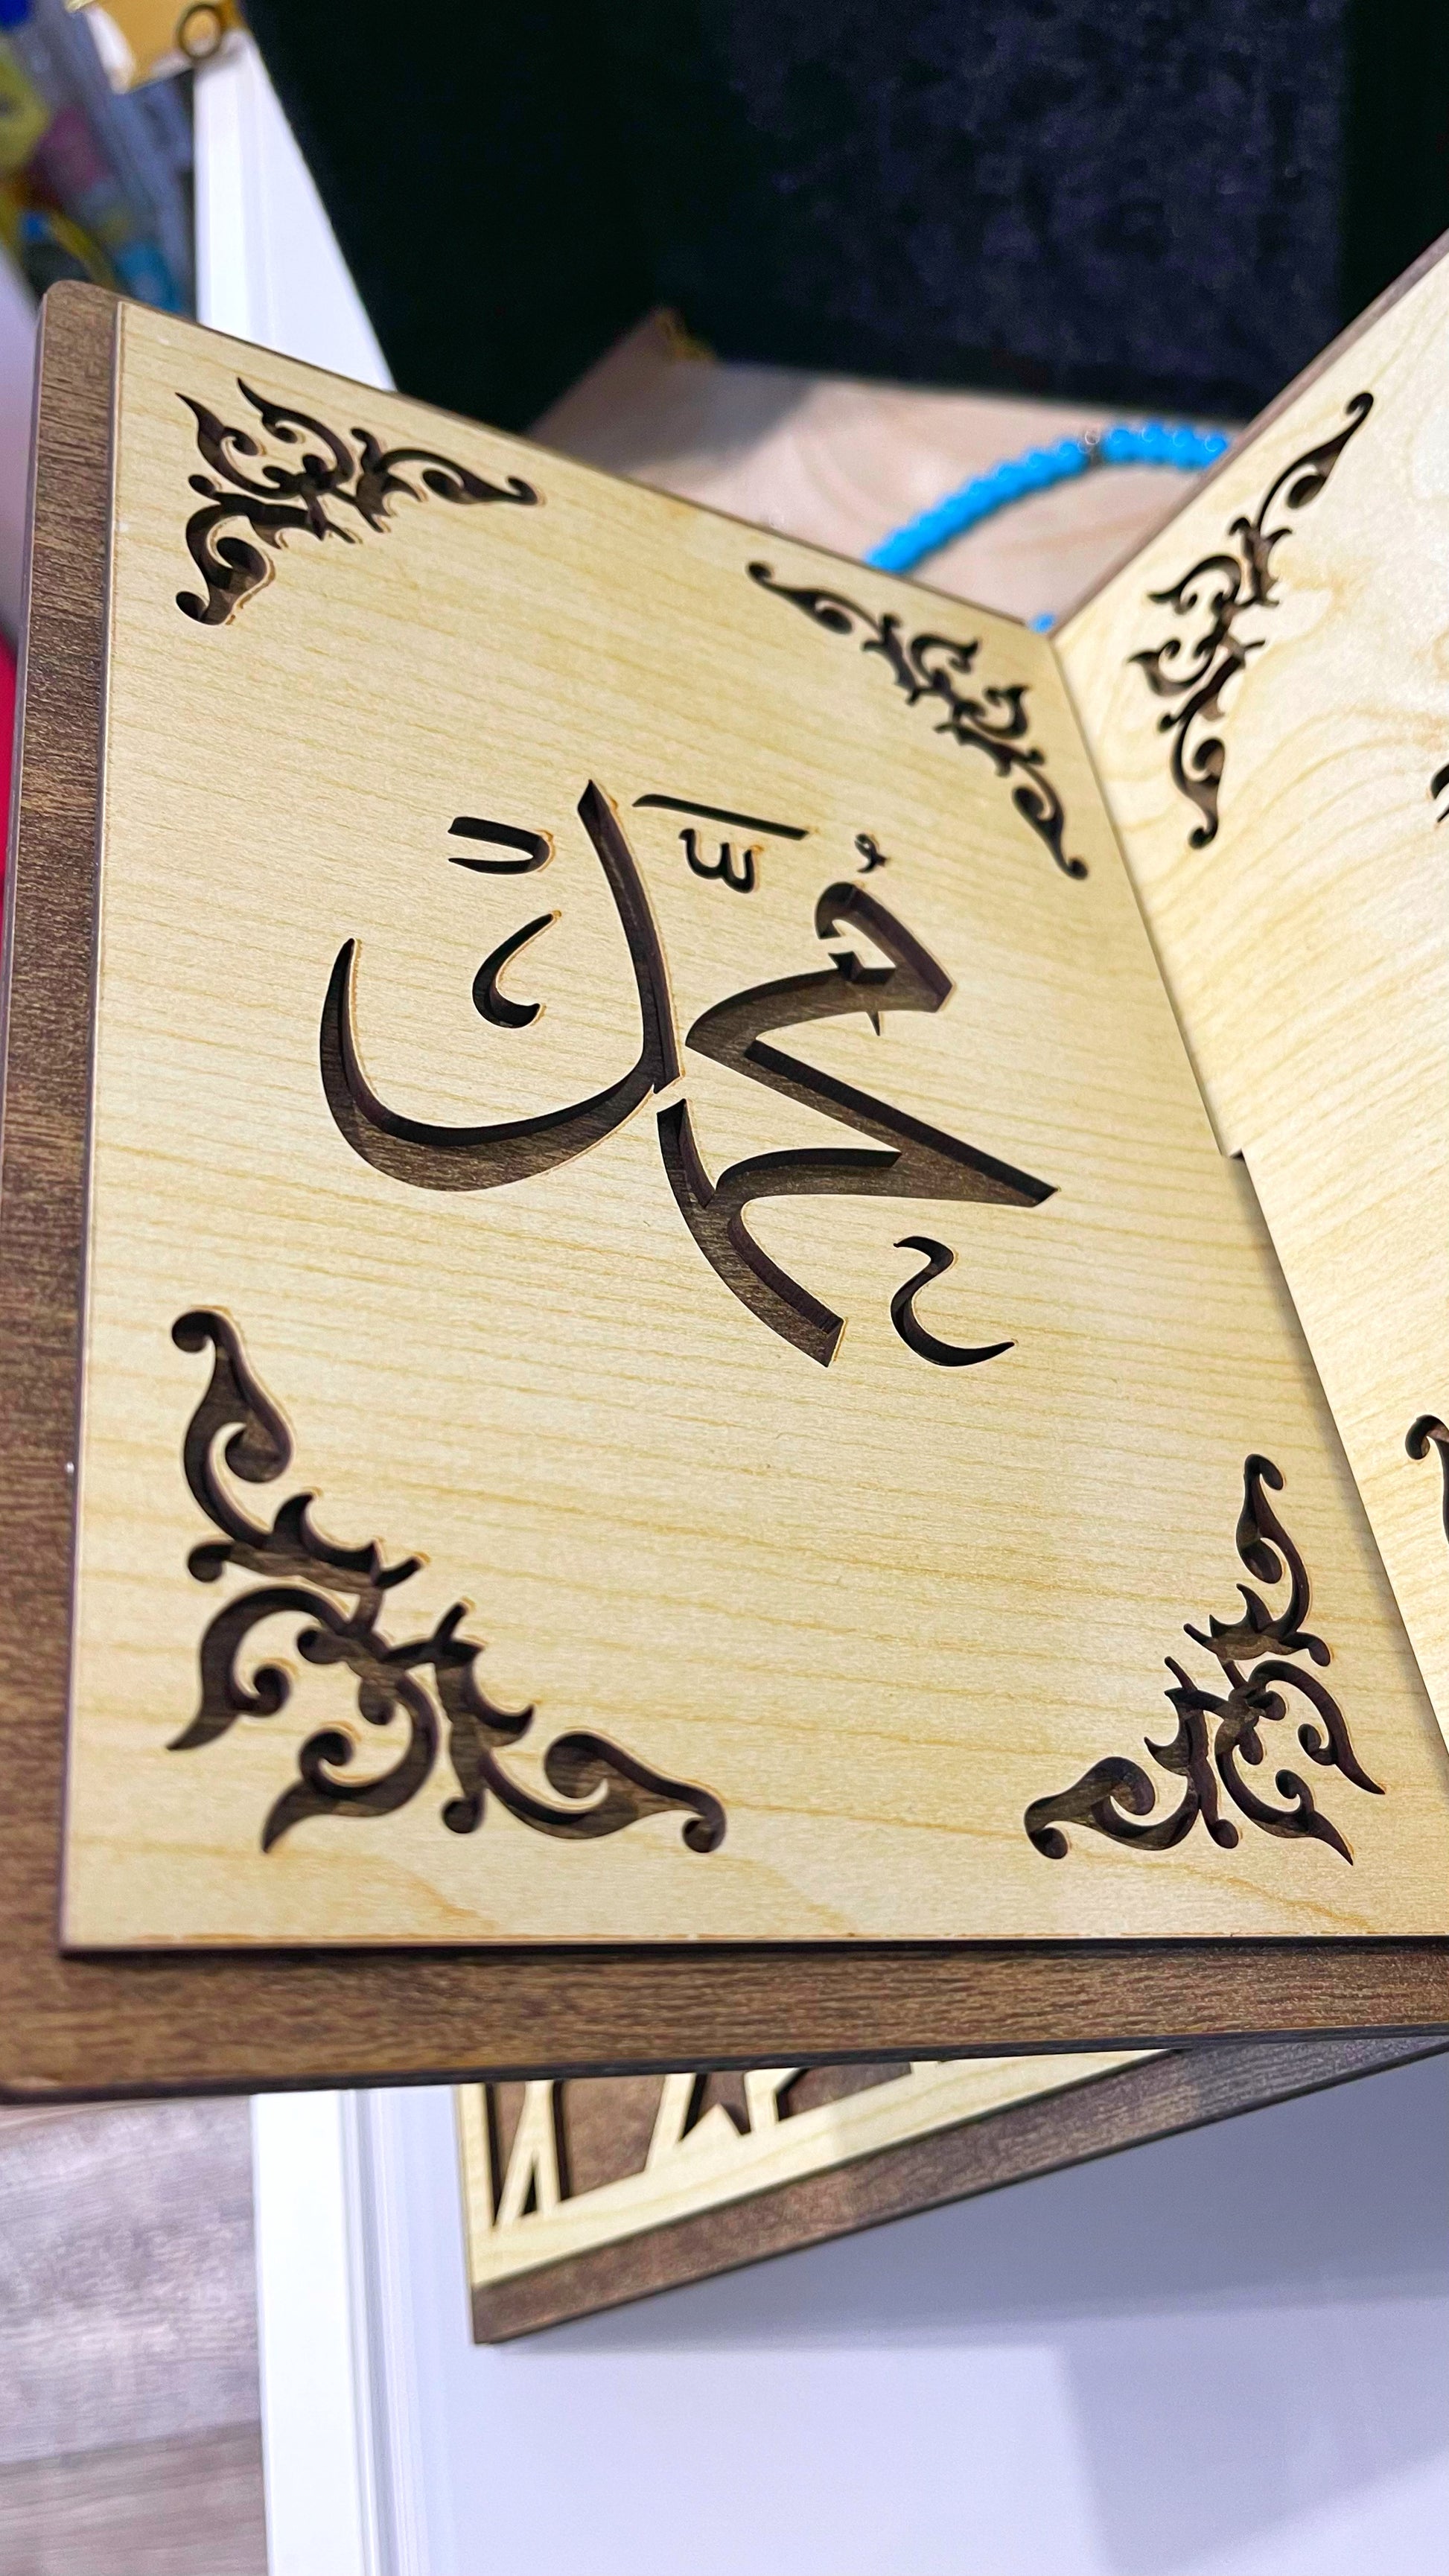 مُحَمَّد